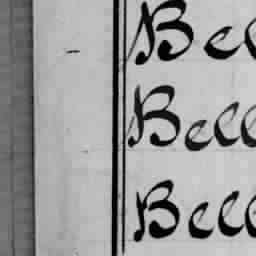 Bel
Bell
Bell